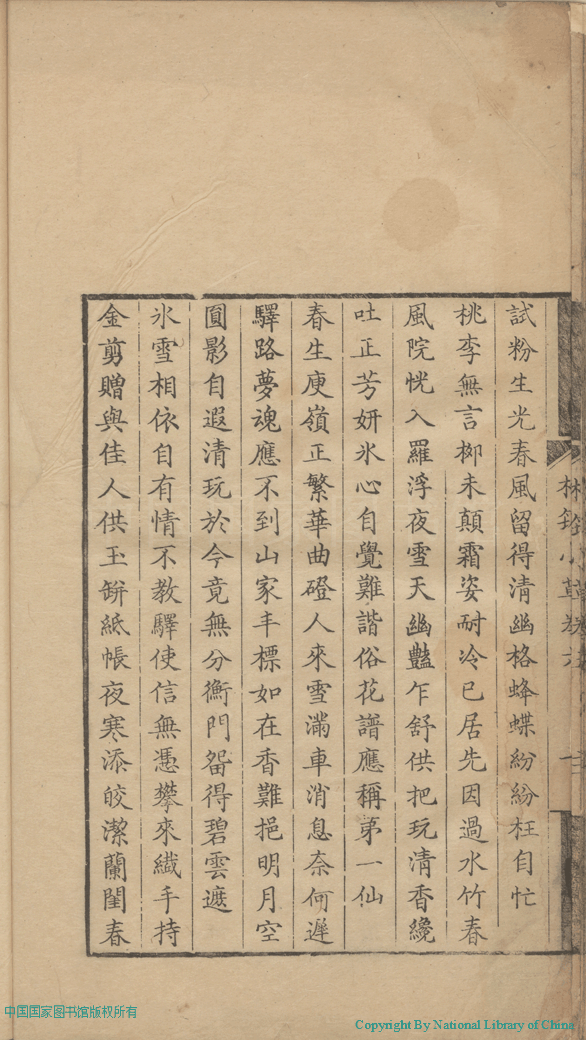 試粉生光春風留得清幽格蜂蝶紛紛枉自忙
桃李無言柳未顛霜姿耐冷已居先因過水竹春
風院恍入羅浮夜雪天幽豔乍舒供把玩清香纔
吐正芳妍氷心自覺難諧俗花譜應稱苐一仙
春生庾嶺正繁華曲磴人來雪滿車消息奈何遲
驛路夢魂應不到山家丰標如在香難挹明月空
圓影自遐清玩於今竟無分衡門留得碧雲遮
氷雪相依自有情不教驛使信無憑攀來纖手持
金剪贈與佳人供玉缾紙帳夜寒添皎潔蘭閨春
中国国家图书馆版权所有
Copyright By National Library of China